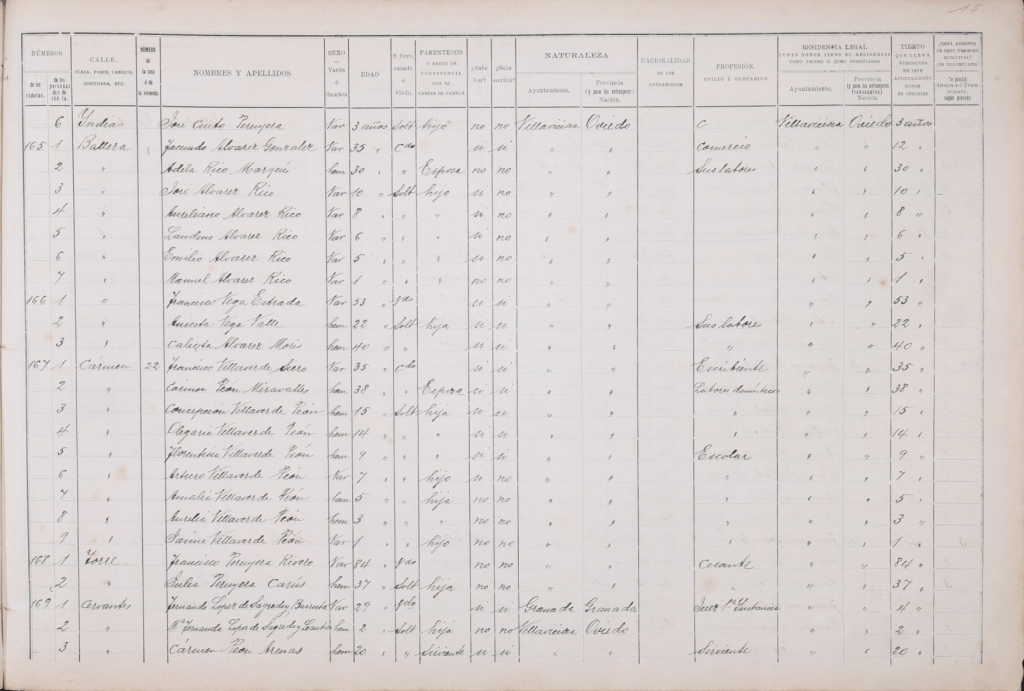 15
NÚMEROS
de las cédulas.
de las personas de c da cédula.
CALLE,
PLAZA, PASEO, CAMINO, CORTIJADA, ETC.
NÚMERO de la casa ó de la vivienda.
NOMBRES Y APELLIDOS
SEXO — Varón ó Hembra
EDAD
S ltero, casado ó viudo.
PARENTESCO Ó RAZÓN DE CONVIVENCIA CON EL CABEZA DE FAMILIA
¿Sabe leer?
¿Sabe escribir?
NATURALEZA
Ayuntamiento.
Provincia (y para los extranjeros) Nación.
NACIONALIDAD DE LOS EXTRANJEROS
PROFESIÓN, OFICIO Ú OCUPACIÓN
RESIDENCIA LEGAL
PUNTO DONDE TIENE SU RESIDENCIA COMO VECINO Ó COMO DOMICILIADO
Ayuntamiento.
Provincia (y para los extranjeros transeuntes) Nación.
TIEMPO QUE LLEVA RESIDIENDO EN ESTE AYUNTAMIENTO DONDE SE INSCRIBE
¿ESTÁ AUSENTE DE ESTE TÉRMINO MUNICIPAL? ¿ES TRANSEUNTE?
Se pondrá Ausente ó Transeunte, según proceda.
6 Indias José Cinto Peruyera Var 3 años Solt hijo no no Villaviciosa Oviedo C Villaviciosa Oviedo 3 años
165 1 Ballera Facundo Alvarez Gonzalez Var 35 " Cdo si si " " Comercio " " 12 "
2 " Adela Rico Marqués hem 30 " " Esposa no no " " Sus labores " " 30 "
3 " José Alvarez Rico Var 10 " Solt hijo si no " " " " 10 "
4 " Aureliano Alvarez Rico Var 8 " " si no " " " " 8 "
5 " Landino Alvarez Rico Var 6 " " " si no " " " " 6 "
6 " Emilio Alvarez Rico Var 5 " " " si no " " " " 5 "
7 " Manuel Alvarez Rico Var 1 " " no no " " " " 1 "
166 1 " Francisco Vega Estrada Var 53 " Vdo si si " " " " 53 "
2 " Aniceta Vega Valle hem 22 " Solt hija si si " " Sus labores " " 22 "
3 " Calixta Alvarez Morís hem 40 " " si si " " " " " 40 "
167 1 Cármen 22 Francisco Villaverde Siero Var 35 " Cdo si si " " Escribiente " " 35 "
2 " Cármen Peón Miravalles hem 38 " " Esposa si si " " Labores domésticas " " 38 "
3 " Concepción Villaverde Peón hem 15 " Solt hija si si " " " " " 15 "
4 " Olegaria Villaverde Peón hem 14 " " " si si " " " " " 14 "
5 " Florentina Villaverde Peón hem 9 " " " si si " " Escolar " " 9 "
6 " Arturo Villaverde Peón Var 7 " " hijo si si " " " " " 7 "
7 " Amalia Villaverde Peón hem 5 " " hija no no " " " " 5 "
8 " Aurelia Villaverde Peón hem 3 " " " no no " " " " " 3 "
9 " Jaime Villaverde Peón Var 1 " " hijo no no " " " " " 1 "
168 1 Torre Francisco Peruyera Rivero Var 84 " Vdo no no " " Cesante " " 84 "
2 " Julia Peruyera Carús hem 37 " Solt hija no no " " " " " 37 "
169 1 Cervantes Fernando Lopez de Sagredo y Var 29 " si si Granada Granada Juez 1ª Instancia " " 4 "
2 " Mª Fernanda Lopez de Sagredo y hem 2 " Solt hija no no Villaviciosa Oviedo " " 2 "
3 " Carmen Peón Arenas hem 20 " " Sirviente si si " " Sirviente " " 20 "